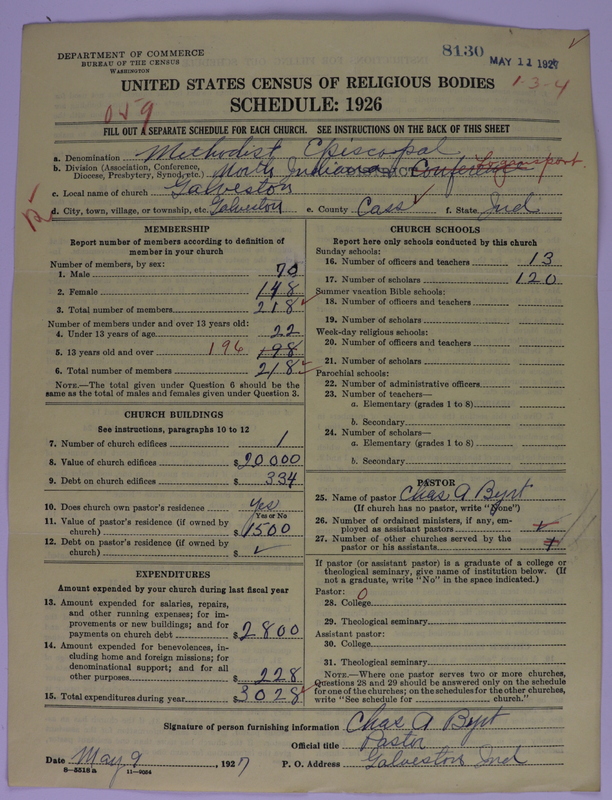 DEPARTMENT OF COMMERCE
BUREAU OF THE CENSUS
WASHINGTON
8130
MAY 11 1927
1-3-4
UNITED STATES CENSUS OF RELIGIOUS BODIES
SCHEDULE: 1926
FILL OUT A SEPARATE SCHEDULE FOR EACH CHURCH. SEE INSTRUCTIONS ON THE BACK OF THIS SHEET
a. Denomination Methodist Episcopal
b. Division (Association, Conference, Diocese, Presbytery, Synod, etc.) North Indiana Conference Logansport
c. Local name of church Galveston
d. City, town, village, or township, etc. Galveston e. County Cass f. State Ind
MEMBERSHIP
Report number of members according to definition of
member in your church
Number of members, by sex:
1. Male 70
2. Female 148
3. Total number of members 218
Number of members under and over 13 years old:
4. Under 13 years of age 22
5. 13 years old and over 196 198
6. Total number of members 218
NOTE.—The total given under Question 6 should be
same as the total of males and females given under Question 3.
CHURCH BUILDINGS
See instructions, paragraphs 10 to 12
7. Number of church edifices 1
8. Value of church edifices $20000
9. Debt on church edifices $334
10. Does church own pastor's residence yes
Yes or No
11. Value of pastor's residence (if owned by
church) $1500
12. Debt on pastor's residence (if owned by
church) $ ✓
EXPENDITURES
Amount expended by your church during last fiscal year
13. Amount expended for salaries, repairs,
and other running expenses; for im-
provements or new buildings; and for
payments on church debt $2800
14. Amount expended for benevolences, in-
cluding home and foreign missions; for
denominational support; and for all
other purposes 228
15. Total expenditures during year $3028
CHURCH SCHOOLS
Report here only schools conducted by this church
Sunday schools:
16. Number of officers and teachers 13
17. Number of scholars 120
Summer vacation Bible schools:
18. Number of officers and teachers
19. Number of scholars
Week-day religious schools:
20. Number of officers and teachers
21. Number of scholars
Parochial schools:
22. Number of administrative officers
23. Number of teachers—
a. Elementary (grades 1 to 8)
b. Secondary
24. Number of scholars—
a. Elementary (grades 1 to 8)
b. Secondary
PASTOR
25. Name of pastor Chas A Byrt
(If church has no pastor, write "None")
26. Number of ordained ministers, if any, em-
ployed as assistant pastors
27. Number of other churches served by the
pastor or his assistants
If pastor (or assistant pastor) is a graduate of a college or
theological seminary, give name of institution below. (If
not a graduate, write "No" in the space indicated.)
Pastor: 0
28. College
29. Theological seminary
Assistant pastor:
30. College
31. Theological seminary
NOTE.—Where one pastor serves two or more churches,
Questions 28 and 29 should be answered only on the schedule
for one of the churches; on the schedules for the other churches,
write "See schedule for church."
Signature of person furnishing information Chas A Byrt
Official title Pastor
Date May 9, 1927 P. O. Address Galveston Ind
8—5518a 11—9024